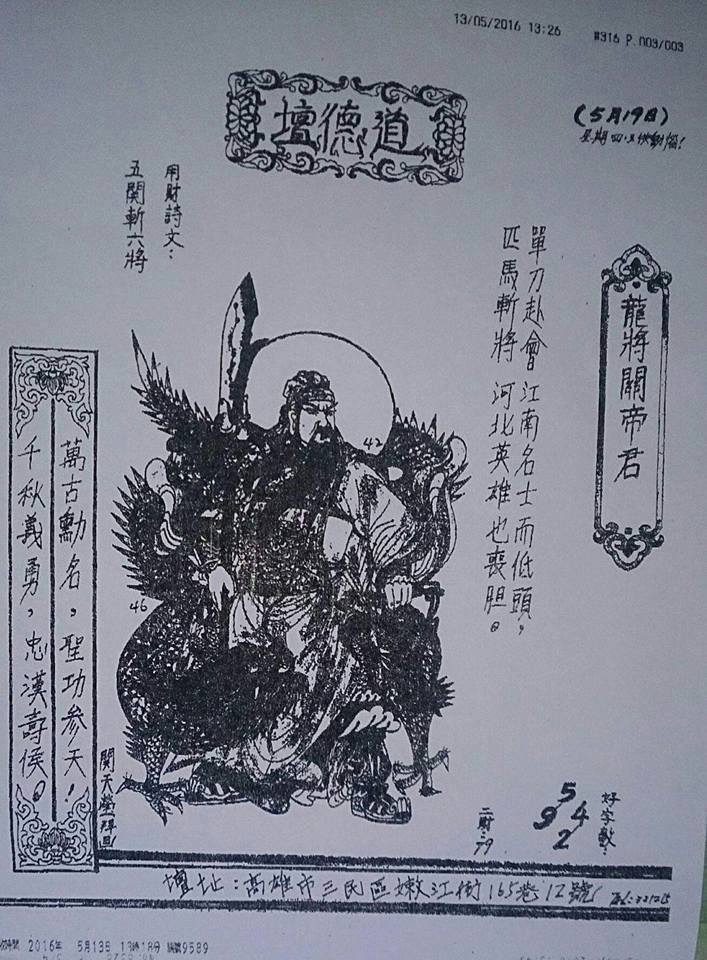 13/05/2016 13:26
#316 P.003/003
道德壇
(5月19日)
龍將關帝君
單刀赴會 江南名士而低頭，
匹馬斬將 河北英雄也喪胆。
用財詩文：
五關斬六將
42
46
萬古勳名，聖功參天！
千秋義勇，忠漢壽侯。
好字數：
5
9 4
2
二財：79
壇址：高雄市三民區嫩江街165巷12號
2016年 5月13日 13時18分 編號9589